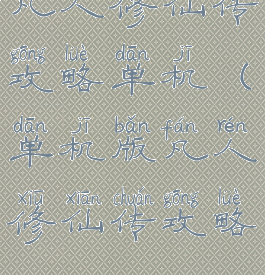 凡人修仙传
gōng lüè dān jī
攻略单机（
dān jī bǎn fán rén
单机版凡人
xiū xiān chuán gōng lüè
修仙传攻略